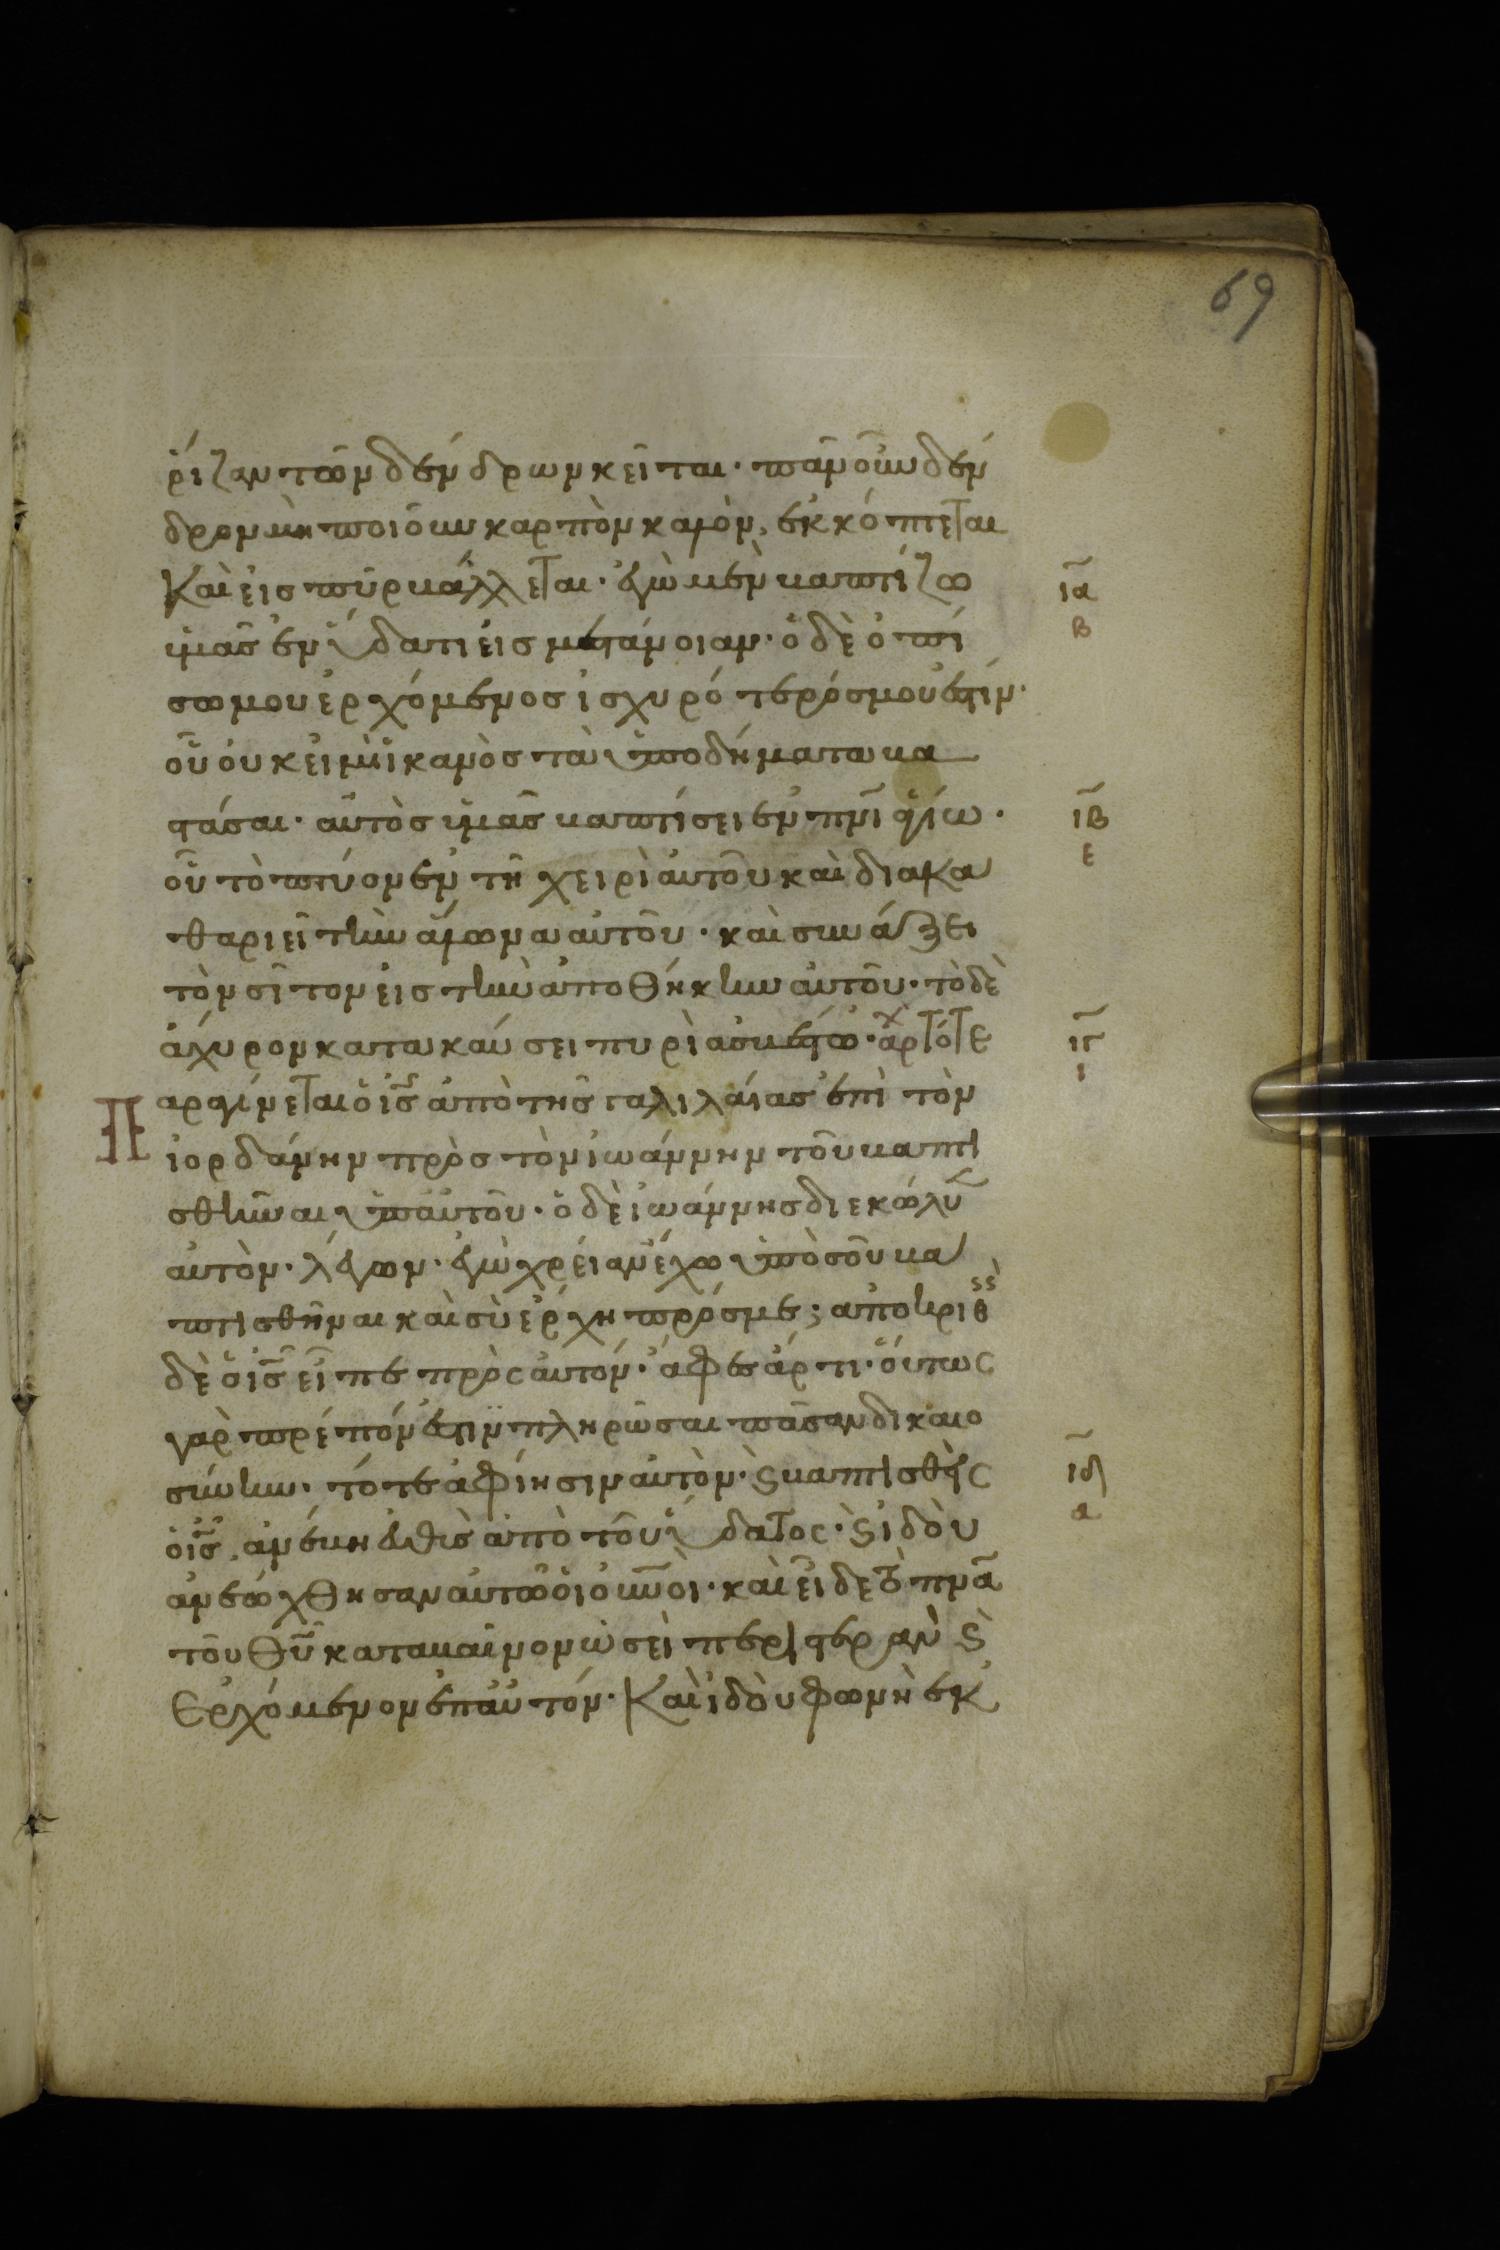 69
ῥίζαν τῶν δένδρων κεῖται· πᾶν οὖν δέν
δρον μὴ ποιοῦν καρπὸν καλὸν, ἐκκόπτεται
Καὶ εἰς πῦρ βάλλεται· ἐγὼ μὲν βαπτίζω
ια
β
ὑμᾶς ἐν ὕδατι εἰς μετάνοιαν· ὁ δὲ ὀπί
σω μου ἐρχόμενος ἰσχυρότερός μού ἐστιν·
οὗ οὐκ εἰμὶ ἱκανὸς τὰ ὑποδήματα βα
στάσαι· αὐτὸς ὑμᾶς βαπτίσει ἐν πνι ἁγίω·
ιβ
ε
οὗ τὸ πτύον ἐν τῆ χειρὶ αὐτοῦ καὶ διακα
θαριεῖ τὴν ἅλωνα αὐτοῦ· καὶ συνάξει
τὸν σῖτον εἰς τὴν ἀποθήκην αὐτοῦ· τὸ δὲ
ἄχυρον κατακαύσει πυρὶ ἀσβέστω· ἀρχ Τότε
ιγ
ι
Παραγίνεται ὁ ις ἀπὸ τῆς γαλιλαίας ἐπὶ τὸν
ἰορδάνην πρὸς τὸν ἰωάννην τοῦ βαπτι
σθῆναι ὑπ αὐτοῦ· ὁ δὲ ἰωάννης διεκώλυ
αὐτὸν· λέγων· ἐγὼ χρείαν ἔχω ὑπὸ σοῦ βα
πτισθῆναι καὶ σὺ ἔρχη πρός με; ἀποκριθ
δὲ ὁ ις εἶπε πρὸς αὐτόν· ἄφες ἄρτι· οὕτως
γὰρ πρέπον ἐστὶν ἡμῖν πληρῶσαι πᾶσαν δικαιο
σύνην· τότε ἀφίησιν αὐτὸν· ϛ βαπτισθεὶς
ιδ
α
ὁ ις, ἀνέβη εὐθὺς ἀπὸ τοῦ ὕδατος· ϛ ἰδοὺ
ἀνεώχθησαν αὐτῶ οἱ οὐνοὶ· καὶ εἶδε τὸ πνα
τοῦ θυ καταβαῖνον ὡσεὶ περιστερὰν ϛ
Ἐρχόμενον ἐπ αὐτόν· Καὶ ἰδοὺ φωνὴ ἐκ